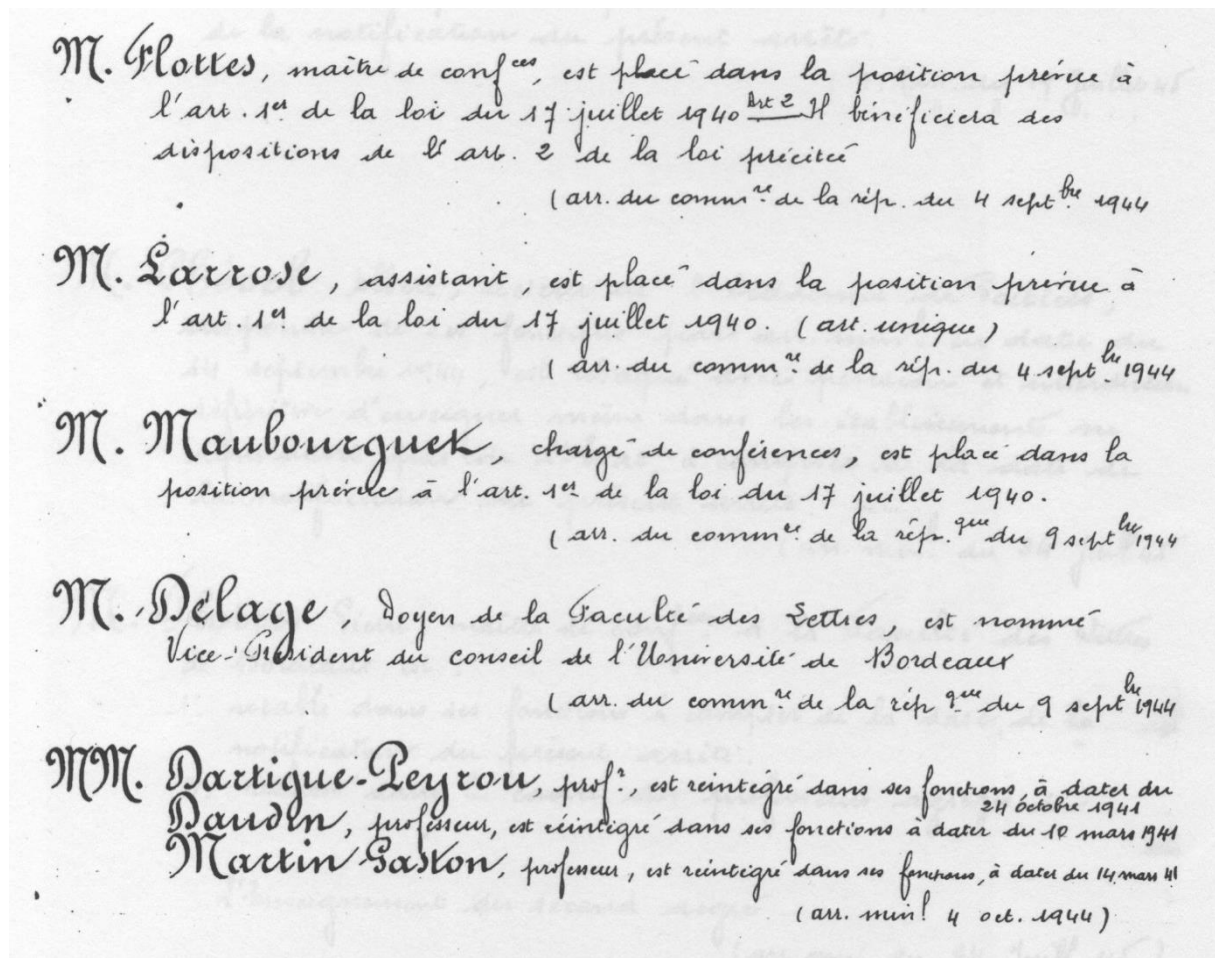 M. Flottes, maître de conf ces, est placé dans la position prévue à
l'art. 1er de la loi du 17 juillet 1940 Art 2 Il bénéficiera des
dispositions de l'art. 2 de la loi précitée
(arr. du comm re de la rép. du 4 sept bre 1944
M. Larrose, assistant, est placé dans la position prévue à
l'art 1er de la loi du 17 juillet 1940. (art. unique)
(arr. du comm re de la rép. du 4 sept bre 1944
M. Maubourguet, chargé de conférences, est placé dans la
position prévue à l'art. 1er de la loi du 17 juillet 1940.
(arr. du comm re de la rép. que du 9 sept bre 1944
M. Delage, Doyen de la Faculté des Lettres, est nommé
Vice-Président du conseil de l'Université de Bordeaux
(arr. du comm re de la rép que du 9 sept bre 1944
MM. Dartigue-Peyrou, prof r, est reintégré dans ses fonctions, à dater du
24 octobre 1941
Daudin, professeur, est réintégré dans ses fonctions à dater du 10 mars 1941
Martin Gaston, professeur, est reintégré dans ses fonctions, à dater du 14 mars 41
(arr. min l 4 oct. 1944)